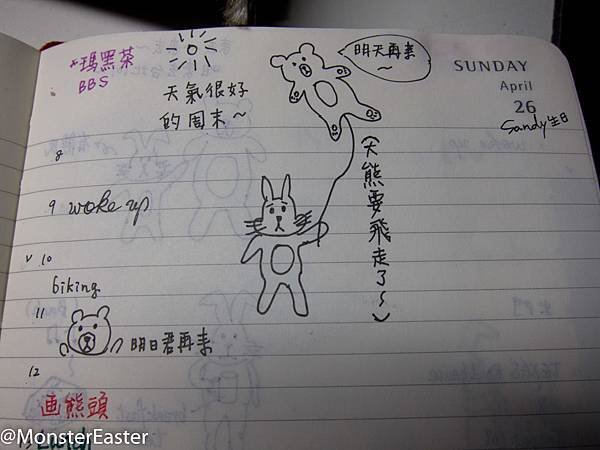 *瑪黑茶
BBS
天氣很好
的周末～
明天再来
～
SUNDAY
April
26
Sandy生日
(大熊要飛走了～)
8
9 woke up
v 10
biking
11
明日君再来
12
画熊頭
Lunch
@MonsterEaster